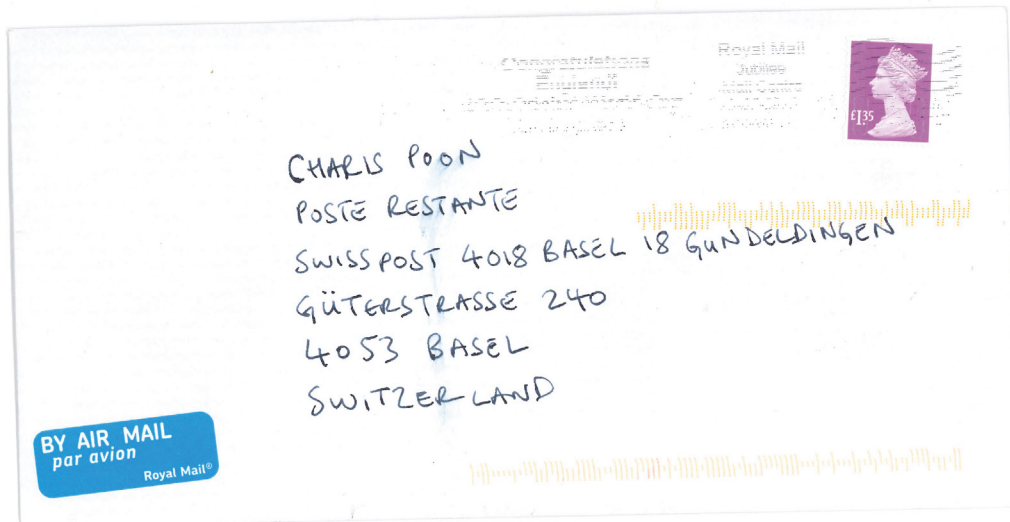 Congratulations
Royal Mail
Jubilee
Mail Centre
£1.35
CHARIS POON
POSTE RESTANTE
SWISSPOST 4018 BASEL 18 GUNDELDINGEN
GÜTERSTRASSE 240
4053 BASEL
SWITZERLAND
BY AIR MAIL
par avion
Royal Mail®